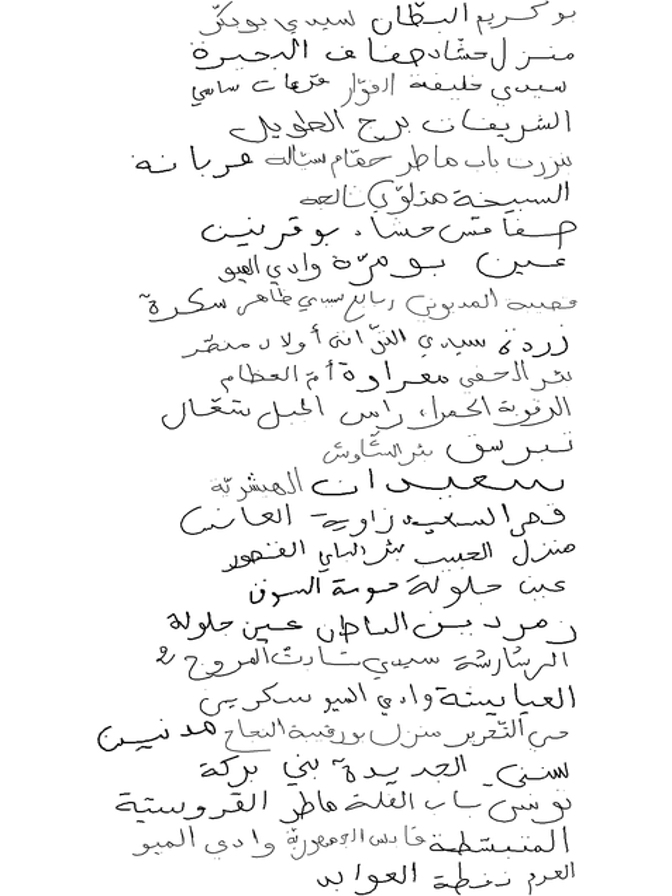 بو كريم البطّان سيدي بوبكّر
منزل حشّاد ضفاف البحيرة
سيدي خليفة الفوّار فرحات ساسي
الشريفات برج الطويل
بنزرت باب ماطر حمّام ستالة عربانة
السبيخة هذلول تالجة
صفاقس حشاد بوقرنين
عين بومرّة وادي الميو
قصيبة المديوني ربايع سيدي ظاهر سكرة
زردة سيدي التوّاتي أولاد منصّر
بئر الحفي مغراوة أمّ العظام
الرقوبة الحمراء راس الجبل شعّال
تبرسق بئر الشّاوش
سعيدان الهيشريّة
قصر السعيد زاوية العانس
منزل الحبيب بئر الباي القصور
عين جلولة حومة السوق
زمردين الباطن عين جلولة
الرشارشة سيدي ثابت المروج 2
العيايشة وادي الميو سكرين
حي التّحرير منزل بورقيبة النجاح مدنين
سنى الجديدة بني بركة
تونس باب القلة ماطر القروستية
المتبسّطة قابس الجمهوريّة وادي الميو
العرم نفطة العوابد